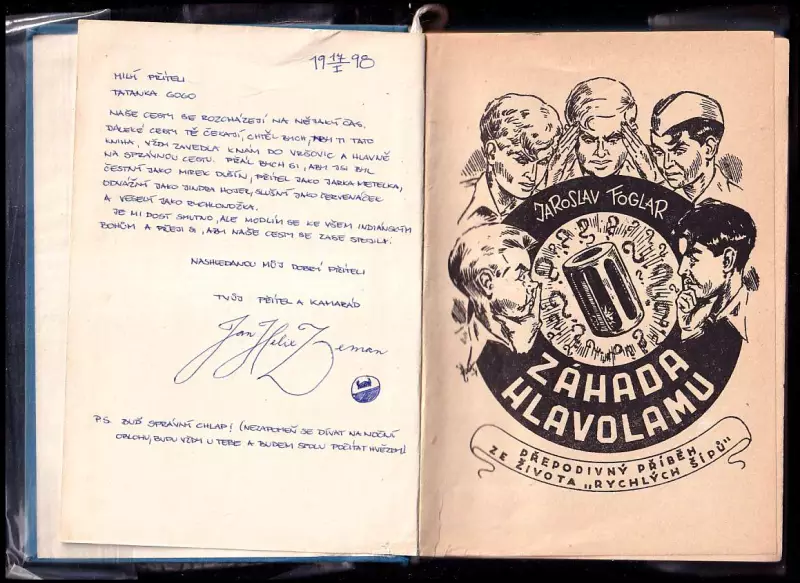 19 17/I 98
MILÝ PŘÍTELI
TATANKA GOGO
NAŠE CESTY SE ROZCHÁZEJÍ NA NĚJAKÝ ČAS.
DALEKÉ CESTY TĚ ČEKAJÍ, CHTĚL BYCH, ABY TI TATO
KNIHA, VŽDY ZAVEDLA K NÁM DO VRŠOVIC A HLAVNĚ
NA SPRÁVNOU CESTU. PŘÁL BYCH SI, ABY JSI BYL
ČESTNÝ JAKO MIREK DUŠÍN, PŘÍTEL JAKO JARKA METELKA,
ODVÁŽNÝ JAKO JINDRA HOJER, SLUŠNÝ JAKO ČERVENÁČEK
A VESELÝ JAKO RYCHLONOŽKA.
JE MI DOST SMUTNO, ALE MODLÍM SE KE VŠEM INDIÁNSKÝM
BOHŮM A PŘEJI SI, ABY NAŠE CESTY SE ZASE SPOJILI.
NASHLEDANOU MŮJ DOBRÝ PŘÍTELI
TVŮJ PŘÍTEL A KAMARÁD
Jan Helix Zeman
PS BUĎ SPRÁVNÝ CHLAP! (NEZAPOMEŇ SE DÍVAT NA NOČNÍ
OBLOHU, BUDU VŽDY U TEBE A BUDEM SPOLU POČÍTAT HVĚZDY)
JAROSLAV FOGLAR
ZÁHADA
HLAVOLAMU
PŘEPODIVNÝ PŘÍBĚH
ZE ŽIVOTA „RYCHLÝCH ŠÍPŮ"